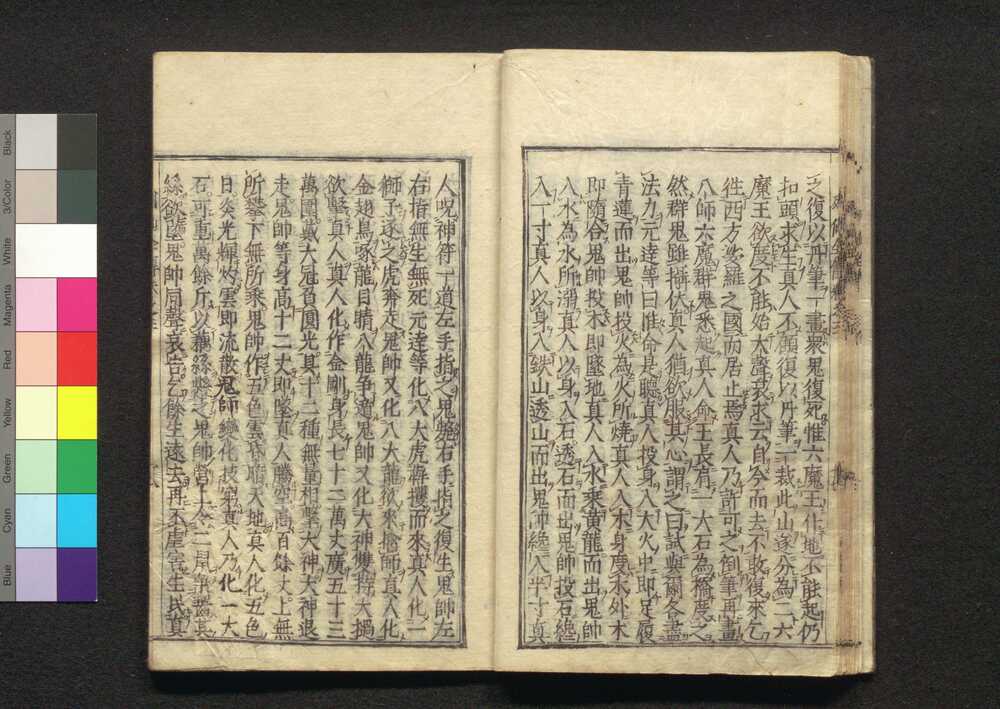 之復以丹筆一畫衆鬼復死惟六魔王仆地不能起仍
扣頭求生真人不顧復以丹筆一裁此山遂分為二六
魔王欲度不能始大聲哀求云自今而去不敢復來乞
徃西方娑羅之國而居止焉真人乃許可之倒筆再畫
八師六魔群鬼悉起真人命王長有一大石為橋度之
然群鬼雖摧伏真人猶欲服其心謂之曰試與爾各盡
法力元達等曰惟命是聽真人投身入大火中即足履
青蓮而出鬼帥投火為火所燒真人入木身度木外木
即隨合鬼帥投木即墜地真人入水乘黄龍而出鬼帥
入水為水所溺真人以身入石透石而出鬼帥投石纔
入一寸真人以身入鉄山透山而出鬼帥纔入半寸真
人呪神符一道左手指之鬼斃右手指之復生鬼帥左
右指無生無死元達等化八大虎犇攫而來真人化一
獅子逐之虎奔走鬼帥又化八大龍欲來擒師真人化
金翅鳥啄龍目睛八龍争遁鬼帥又化大神雙持大搨
欲擊真人真人化作金剛身長七十二萬丈廣五十三
萬圍戴大冠負圓光具十二種無量相擊大神大神退
走鬼帥等身高十二丈即墜真人騰空高百餘丈上無
所攀下無所乘鬼帥作五色雲昏暗天地真人化五色
日炎光輝灼雲即流散鬼師變化技窮真人乃化一大
石可重萬餘斤以藕絲懸之鬼帥營上令二鼠爭齧其
絲欲墮鬼帥同聲哀告乞餘生遠去再不虐害生民真
Black
3/Color
White
Magenta
Red
Yellow
Green
Cyan
Blue